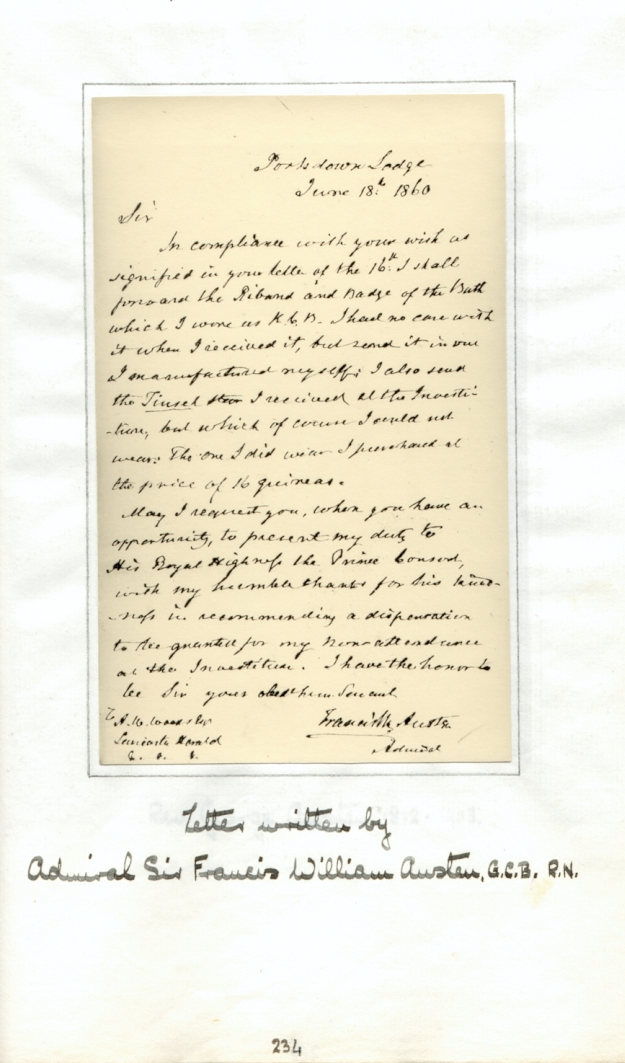 Portsdown Lodge
June 18th 1860
Sir
In compliance with your wish as
signified in your letter of the 16th I shall
forward the Riband and Badge of the Bath
which I wore as K.C.B. I had no case with
it when I received it, but send it in one
I manufactured myself; I also send
the Tinsel Star I received at the Investi-
-ture, but which of course I could not
wear: The one I did wear I purchased at
the price of 16 guineas.
May I request you, when you have an
opportunity, to present my duty to
His Royal Highness the Prince Consort,
with my humble thanks for his kind-
-ness in recommending a dispensation
to be granted for my Non-attendance
at the Investiture. I have the honor to
be Sir your obedt hum. Servant
Francis W. Austen
Admiral
To A. W. Woods Esqr
Lancaster Herald
Letter written by
Admiral Sir Francis William Austen, G.C.B. R.N.
234